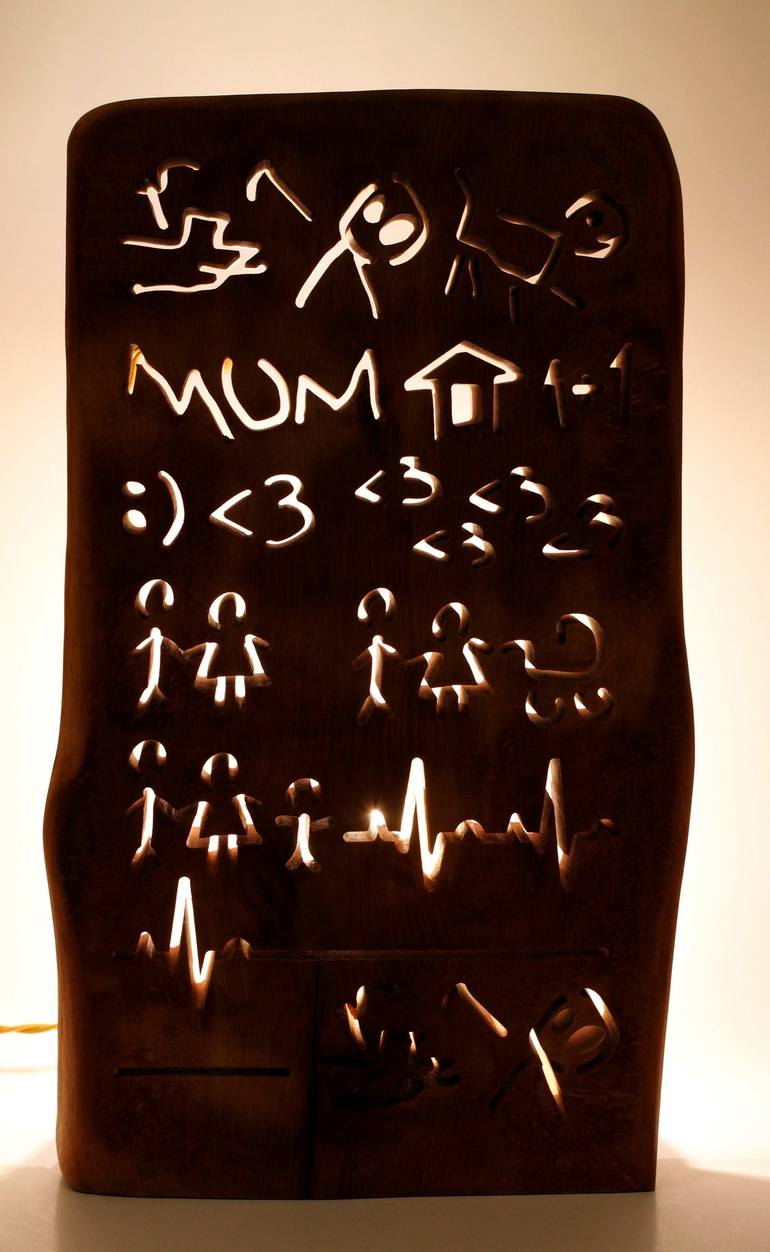 MUM 1+1
:) <3 <3 <3
<3 <3